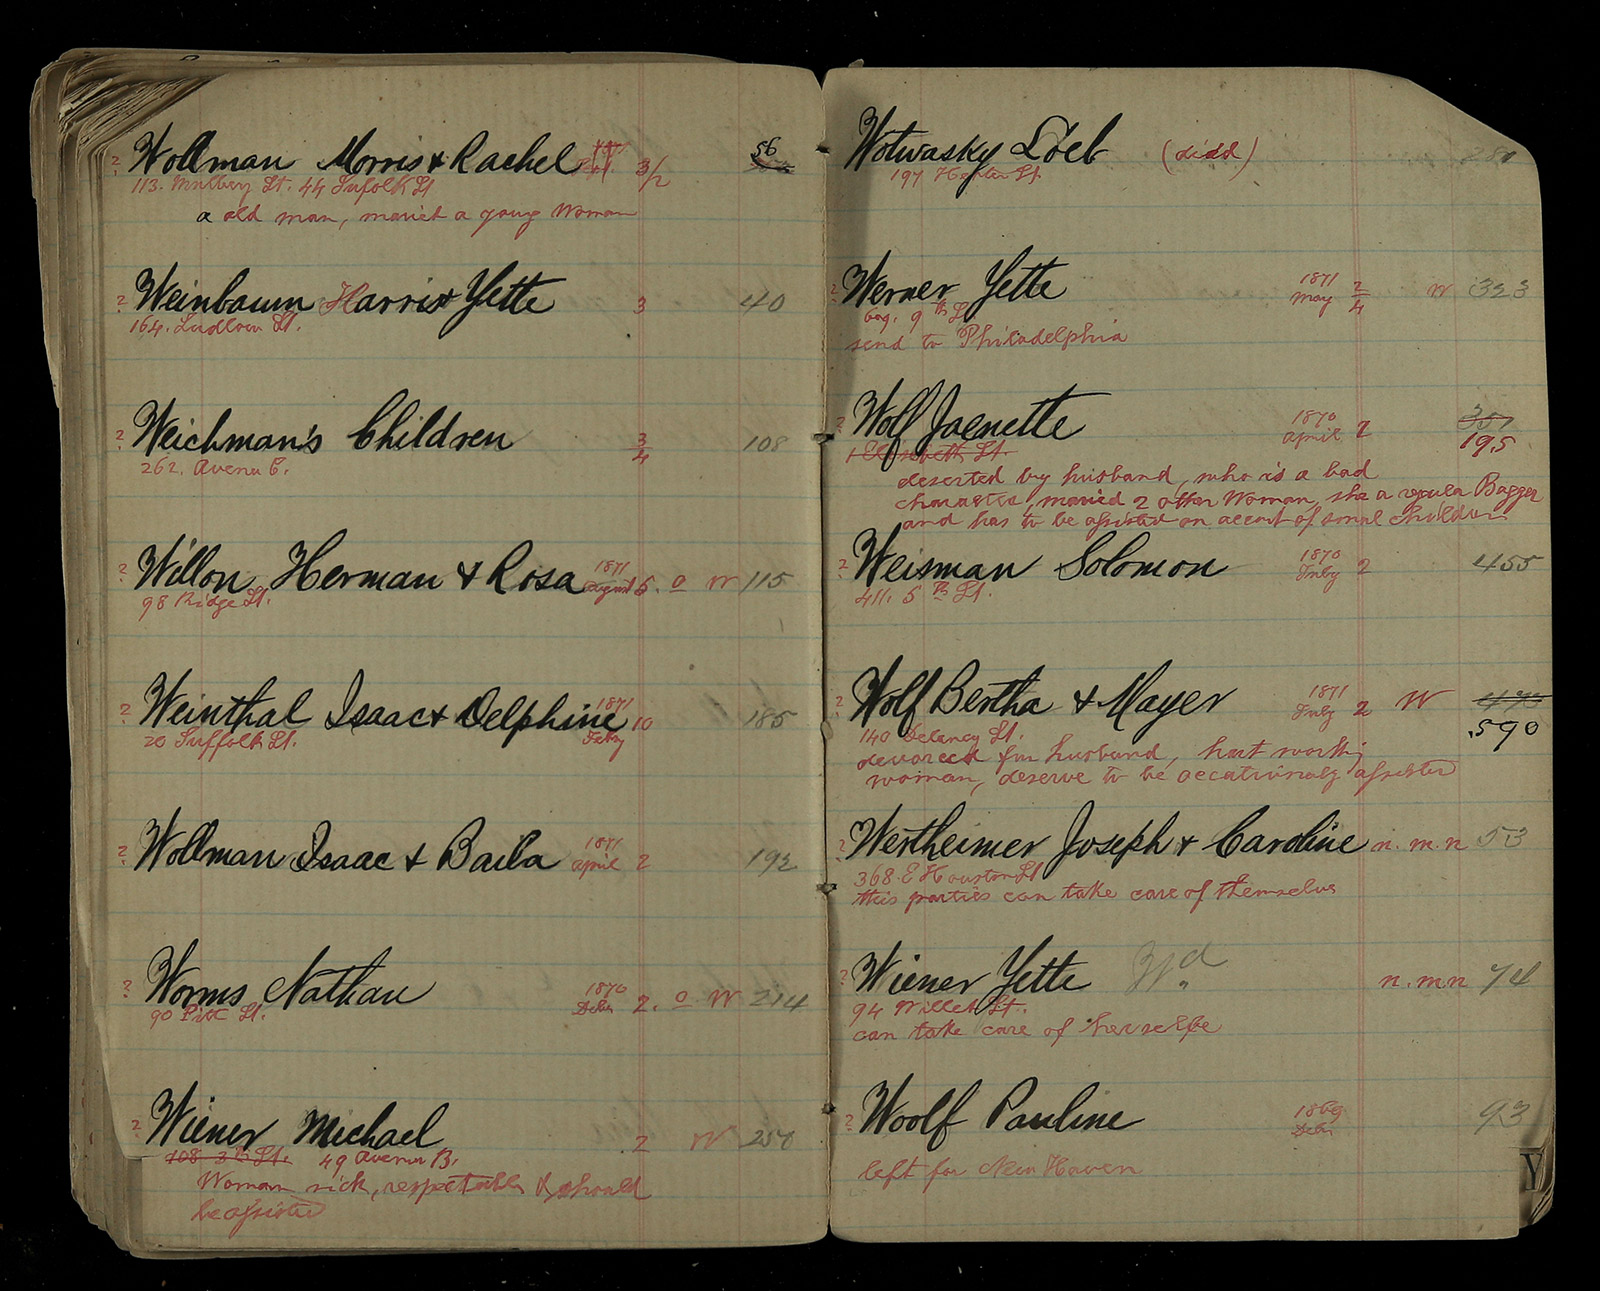 ? Wollman Morris & Rachel 3/2 56
113. Mulbery St. 44 Sufolk St
a old man, marriet a young Woman
? Weinbaum Harris & Yette 3 40
164. Ludlow St.
? Weichman's Children 3/4 108
262. Avenu C.
? Willon Herman & Rosa 1871 August 5. o W 115
98 Ridge St.
? Weinthal Isaac & Delphine 1871 Feby 10 185
20 Suffolk St.
? Wollman Isaac & Baila 1871 April 2 192
? Worms Nathan 1870 Debr 2. o W 214
90 Pitt St.
? Wiener Michael 2 W 250
108 3th St. 49 Avenu B.
Woman sick, respectable & should
be assisted
Wotwasky Löeb (died) 280
197 Hester St
? Werner Yette 1871 May 2/4 W 323
609. 9th St
send to Philadelphia
? Wolf Jaenette 1870 April 2 351
195
1 Elisebeth St.
deserted by husband, who is a bad
character, maried 2 other Woman, she a regula Bagger
and has to be assisted on account of small children
? Weisman Solomon 1870 July 2 455
411. 5th St.
? Wolf Bertha & Mayer 1871 July 2 W 470
590
140 Delancy St.
devorced fm husband, hart workig
woman, deserve to be occationaly assisted
? Wertheimer Joseph & Caroline n. m. n 53
368. E Houston St
this parties can take care of themselves
? Wiener Yette Wd. n. m. n 74
94 Willet St.
can take care of herselfe
? Woolf Pauline 1869 Debr 93
left for New Haven
Y